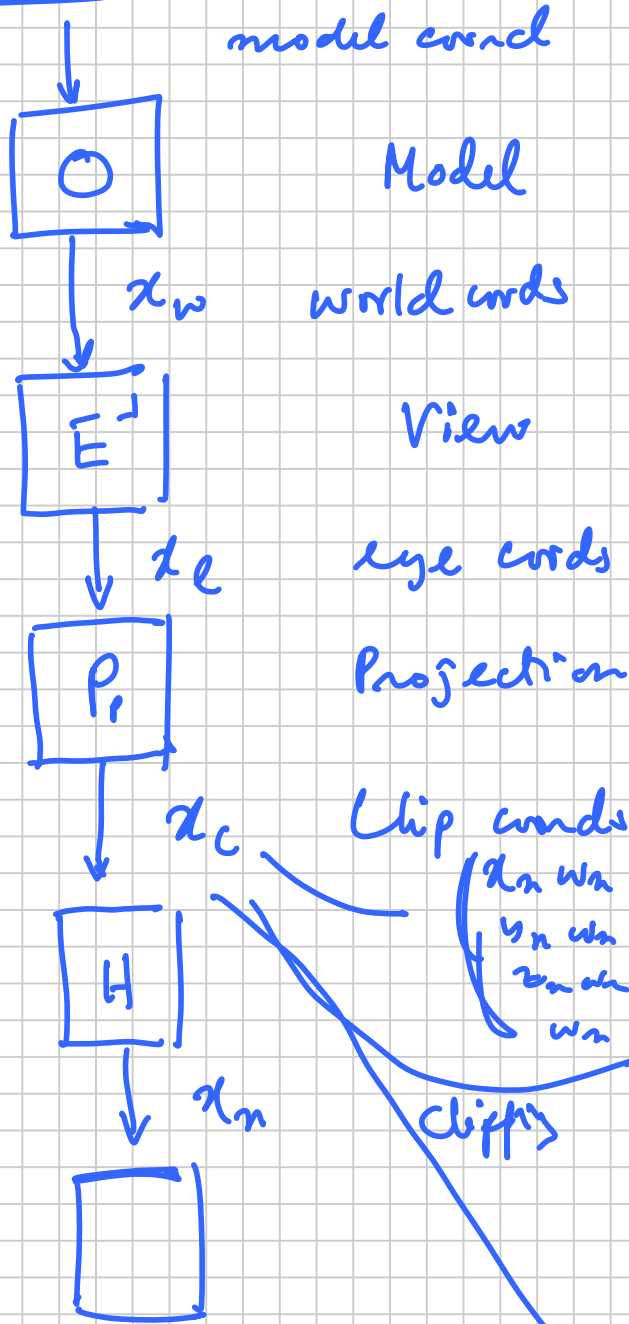 model coord
O Model
x_w world cords
E^-1 View
x_e eye cords
P_p Projection
x_c Clip coords
x_n w_n
y_n w_n
z_n w_n
w_n
H
x_n
Clipping